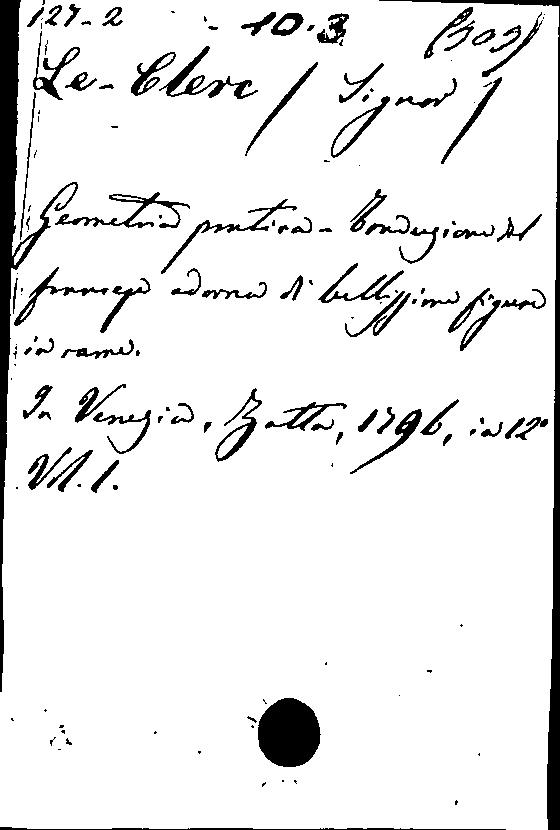 127-2 - 10.3 (303)
Le-Clerc / Signor /
Geometria pratica - Traduzione dal
francese adorna di bellissime figure
in rame.
In Venezia, Zatta, 1796, in 12°
Vol. 1.